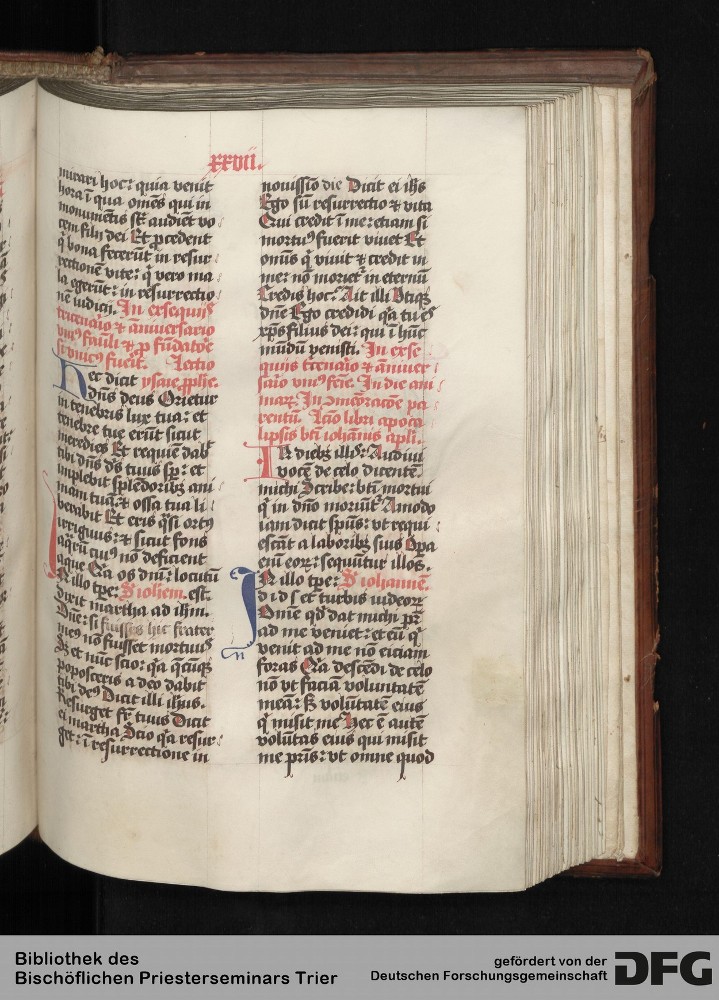 xxvii.
mirari hoc: quia venit
hora ī qua om̄es qui in
monumētis sūt audiēt vo
cem filii dei Et ꝓcedent
q̄ bona fecerūt in resur
rectionē vite: q̄ vero ma
la egerūt: in resurrectio
nē iudicii. In exequiis
tricenaꝛio ⁊ āniuersario
vniꝰ fāuli ⁊ ꝓ fūdatoꝛe
si vnicꝰ fuerit. Lectio
Hec dicit ysaie ꝓphe.
dn̄s deus Orietur
in tenebris lux tua: et
tenebre tue erūt sicut
meredies Et requiē dab̄
tibi dn̄s dꝰs tuus sp̄: et
implebit splēdoribꝫ ani
mam tuā: ⁊ ossa tua li
berabit Et eris q̄si ortꝰ
irriguus: ⁊ sicut fons
aq̄rū cuiꝰ nō deficient
aque Q̄a os dn̄i locutū
IN illo tp̄e: S iohem. est.
Dixit martha ad ih̄m.
Dn̄e: si fuisses hic frater
meꝰ nō fuisset mortuus
Sꝫ et nūc scio: q̄a q̄cūqꝫ
poposceris a deo dabit
tibi deꝰ Dicit illi ih̄us.
Resurget fr̄ tuus Dicit
ei martha Scio q̄a resur
get: ī resurrectione in
nouissīo die Dicit ei ih̄s
Ego sū resurrectio ⁊ vita
Qui credit ī me: etiam si
mortuꝰ fuerit viuet Et
om̄is q̄ viuit ⁊ credit in
me: nō morieꞇ̄ in eternū
Credis hoc: Ait illi Vtiqꝫ
dn̄e Ego credidi q̄a tu es
xp̄s filius dei: qui ī hūc
mūdū venisti. In exe
quiis trēnaꝛio ⁊ āniuer
saꝛio vniꝰ feīe. In die ani
maꝝ. In ɔmēoꝛacōe pa
rentū. Lc̄io libri apoca
lipsis bt̄i ioħānis apl̄i.
IN diebꝫ illis: Audiui
vocē de celo dicentē.
michi Scribe: bt̄i mortui
q̄ in dn̄o moriūꞇ̄ Amodo
iam dicit spūs: vt requi
escāt a laboribꝫ suis Opa
eni eoꝝ: sequūtur illos.
IN illo tp̄e: S ioħannē.
d i d s et turbis iudeoꝝ
Omne qd̄ dat michi pr̄
ad me veniet: et eū q̄
venit ad me nō eiciam
foras Q̄a descēdi de celo
nō vt faciā voluntatē
meā: sꝫ volūtatē eius
q̄ misit me Hec ē autē
volūtas eius qui misit
me pr̄is: vt omne quod
Bibliothek des
Bischöflichen Priesterseminars Trier
gefördert von der
Deutschen Forschungsgemeinschaft
DFG